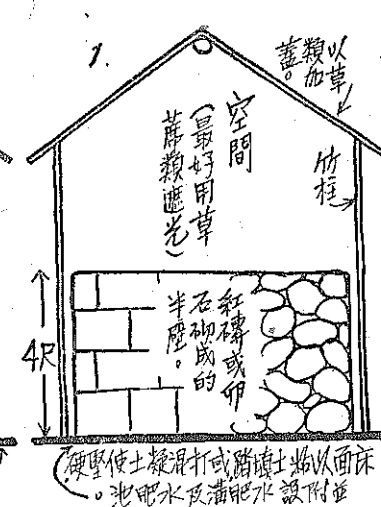 1.
以草
類加
蓋。
竹柱
空間
(最好用草
蓆類遮光)
紅磚或卵
石砌成的
半壁。
4尺
床面以粘土填踏或打混凝土使堅硬
並附設水肥溝及水肥池。